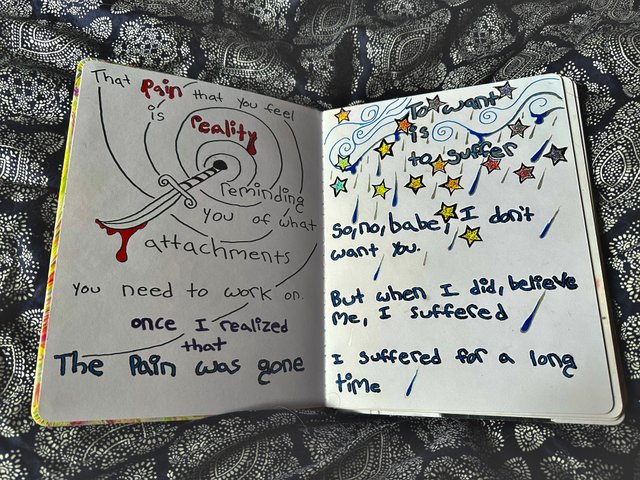 That Pain that you feel
is
reality
reminding
you of what
attachments
you need to work on.
once I realized
that
The Pain was gone
To want
is
to suffer
So, no, babe, I don't
want you.
But when I did, believe
me, I suffered
I suffered for a long
time